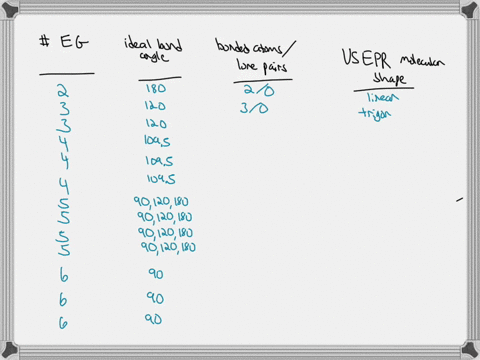 # EG ideal bond angle bonded atoms/ lone pairs VSEPR molecular shape
2 180 2/0 linear
3 120 3/0 trigon
3 120
4 109.5
4 109.5
4 109.5
5 90,120,180
5 90,120,180
5 90,120,180
5 90,120,180
6 90
6 90
6 90